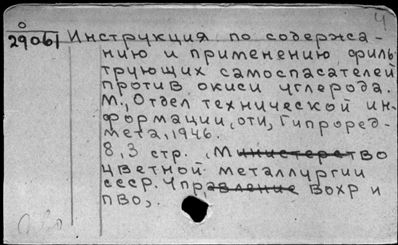 О
29061 Инструкция по содержа-
нию и применению филь-
трующих самоспасателей
против окиси углерода.
М., Отдел технической ин-
формации, оти, Гипроред-
мета, 1946.
8,3 стр. (Министерство
цветной металлургии
СССР. Управление ВОХР и
ПВО).